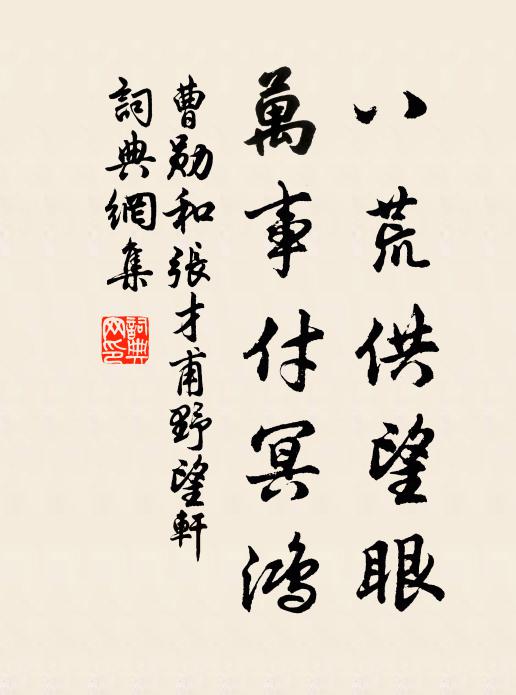 八荒供望眼
萬事付冥鴻
曹勛和張才甫野望軒
詞典網集
詞典
网印